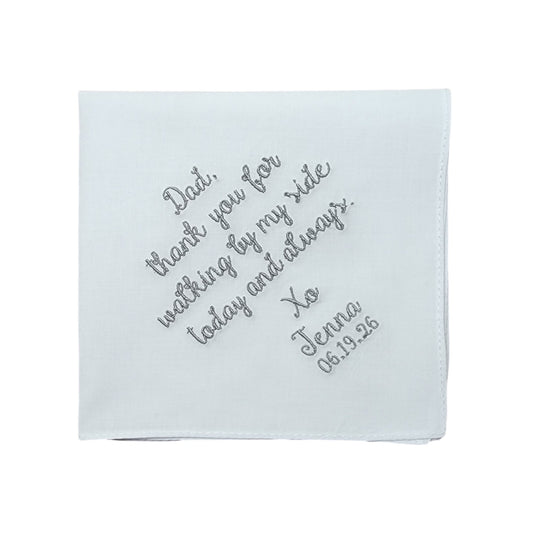 Dad,
thank you for
walking by my side
today and always.
Xo
Jenna
06.19.26